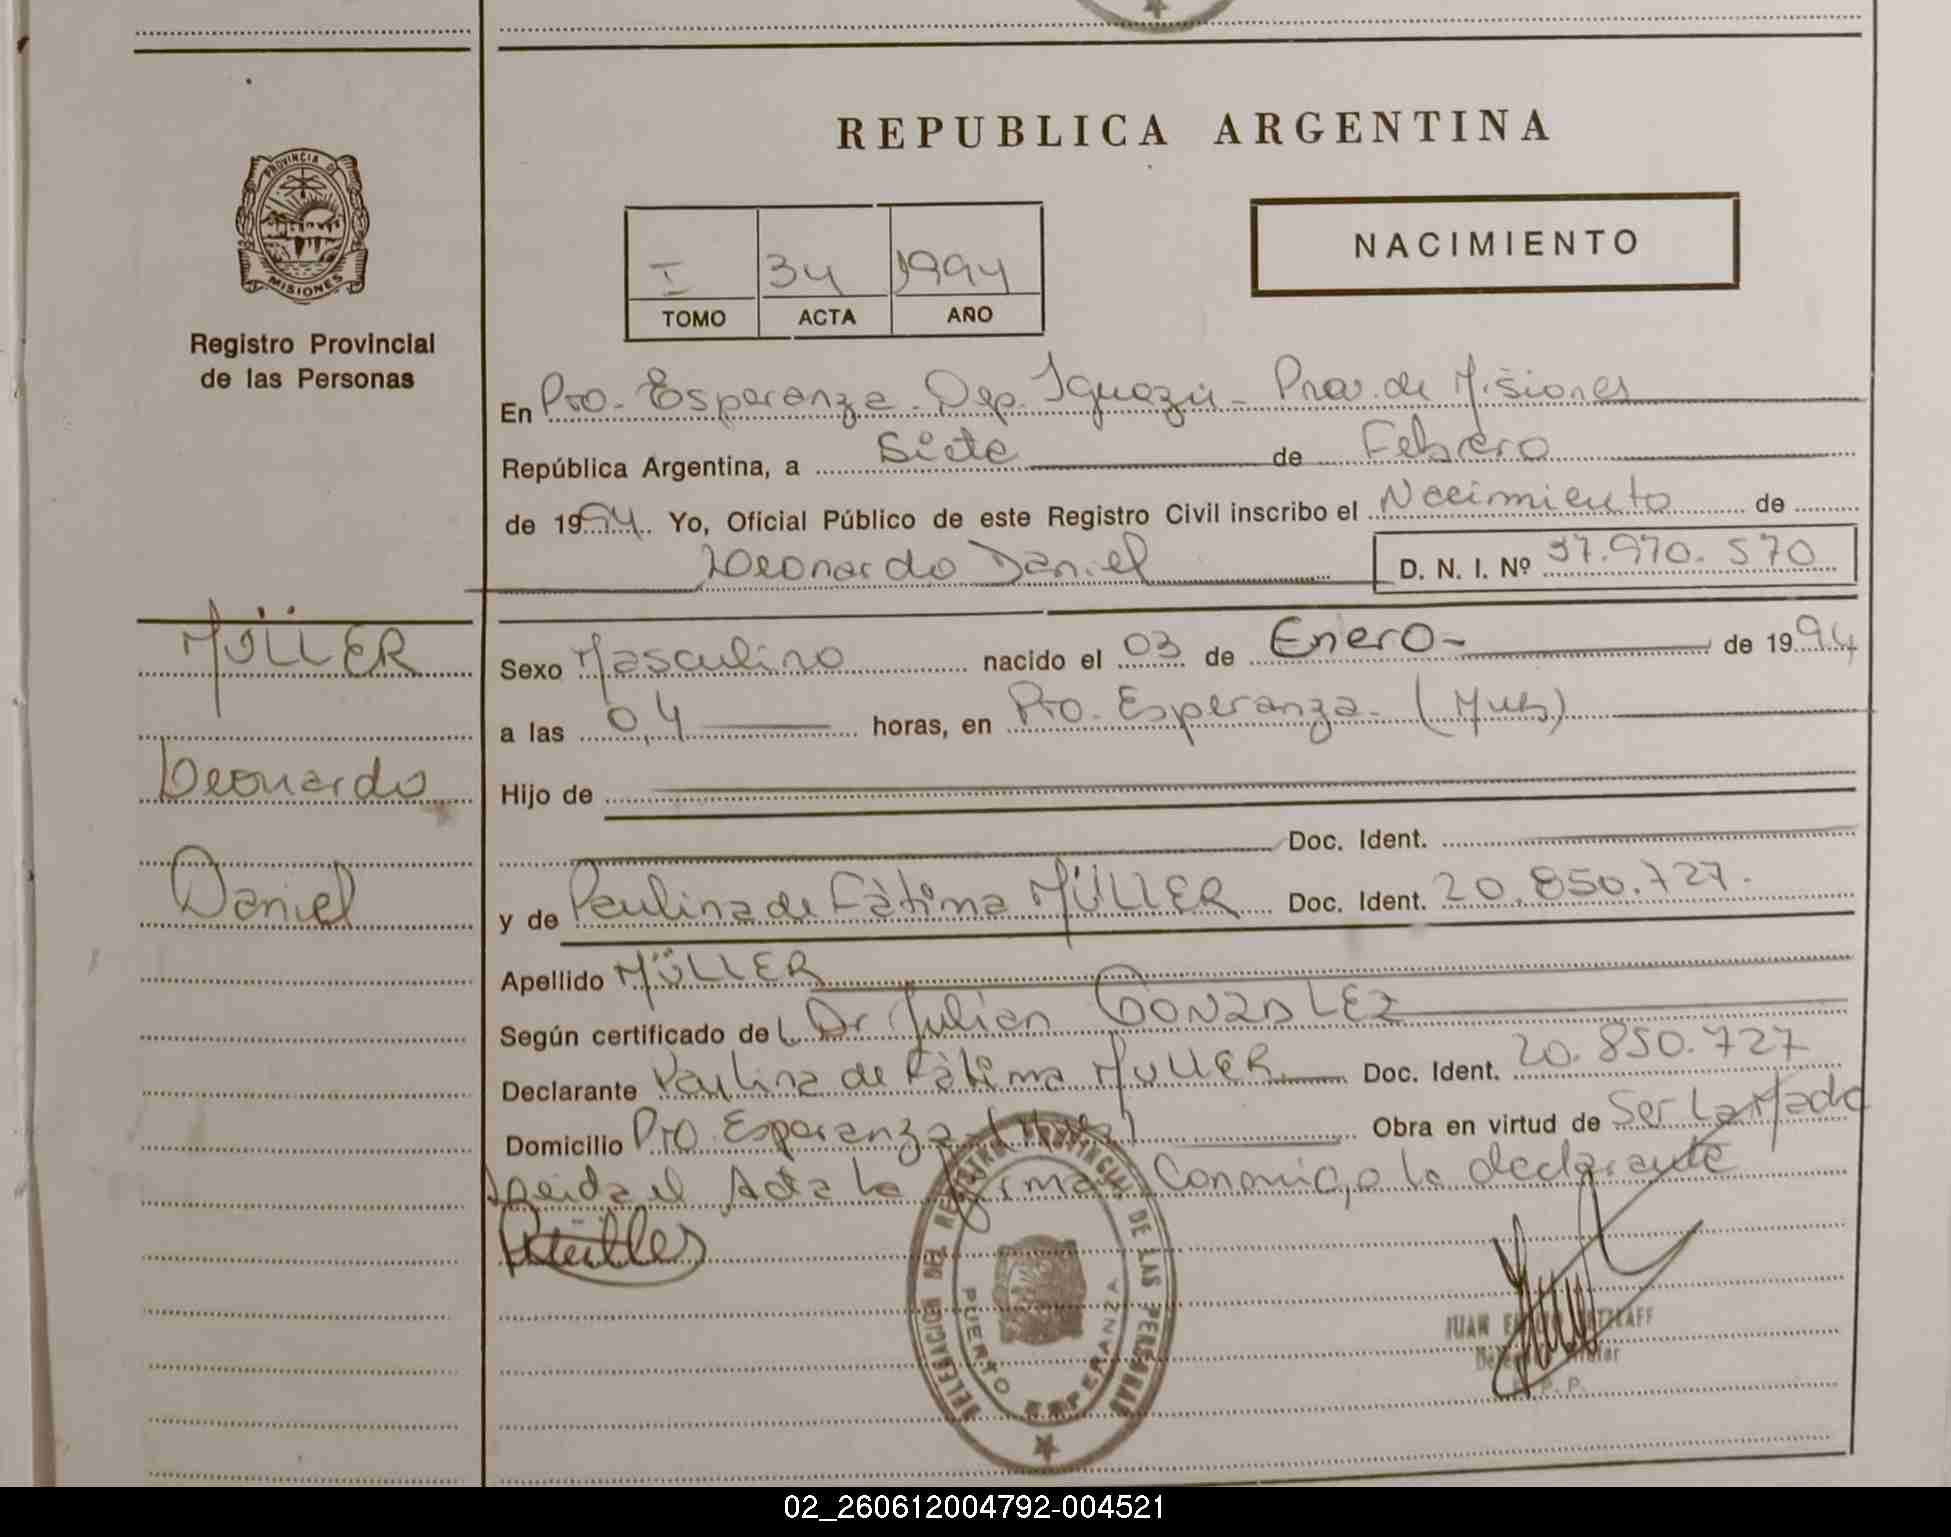 REPUBLICA ARGENTINA
PROVINCIA DE MISIONES
Registro Provincial
de las Personas
I 34 1994
TOMO ACTA AÑO
NACIMIENTO
En Pto. Esperanza. Dep. Iguazú - Prov. de Misiones
República Argentina, a Siete de Febrero
de 1994. Yo, Oficial Público de este Registro Civil inscribo el Nacimiento de
Leonardo Daniel D. N. I. Nº 37.970.570
MÜLLER
Leonardo
Daniel
Sexo Masculino nacido el 03 de Enero- de 1994
a las 04 horas, en Pto. Esperanza. (Mnes)
Hijo de
Doc. Ident.
y de Paulina de Fátima MÜLLER Doc. Ident. 20.850.727.
Apellido MÜLLER
Según certificado del Dr Julian GONZALEZ
Declarante Paulina de Fátima MULLER Doc. Ident. 20.850.727
Domicilio Pto. Esperanza (Mnes) Obra en virtud de Ser La Madre
Leida el Acta la firma Conmigo la declarante
DELEGACION DEL REGISTRO PROVINCIAL DE LAS PERSONAS
PUERTO ESPERANZA
JUAN
02_260612004792-004521